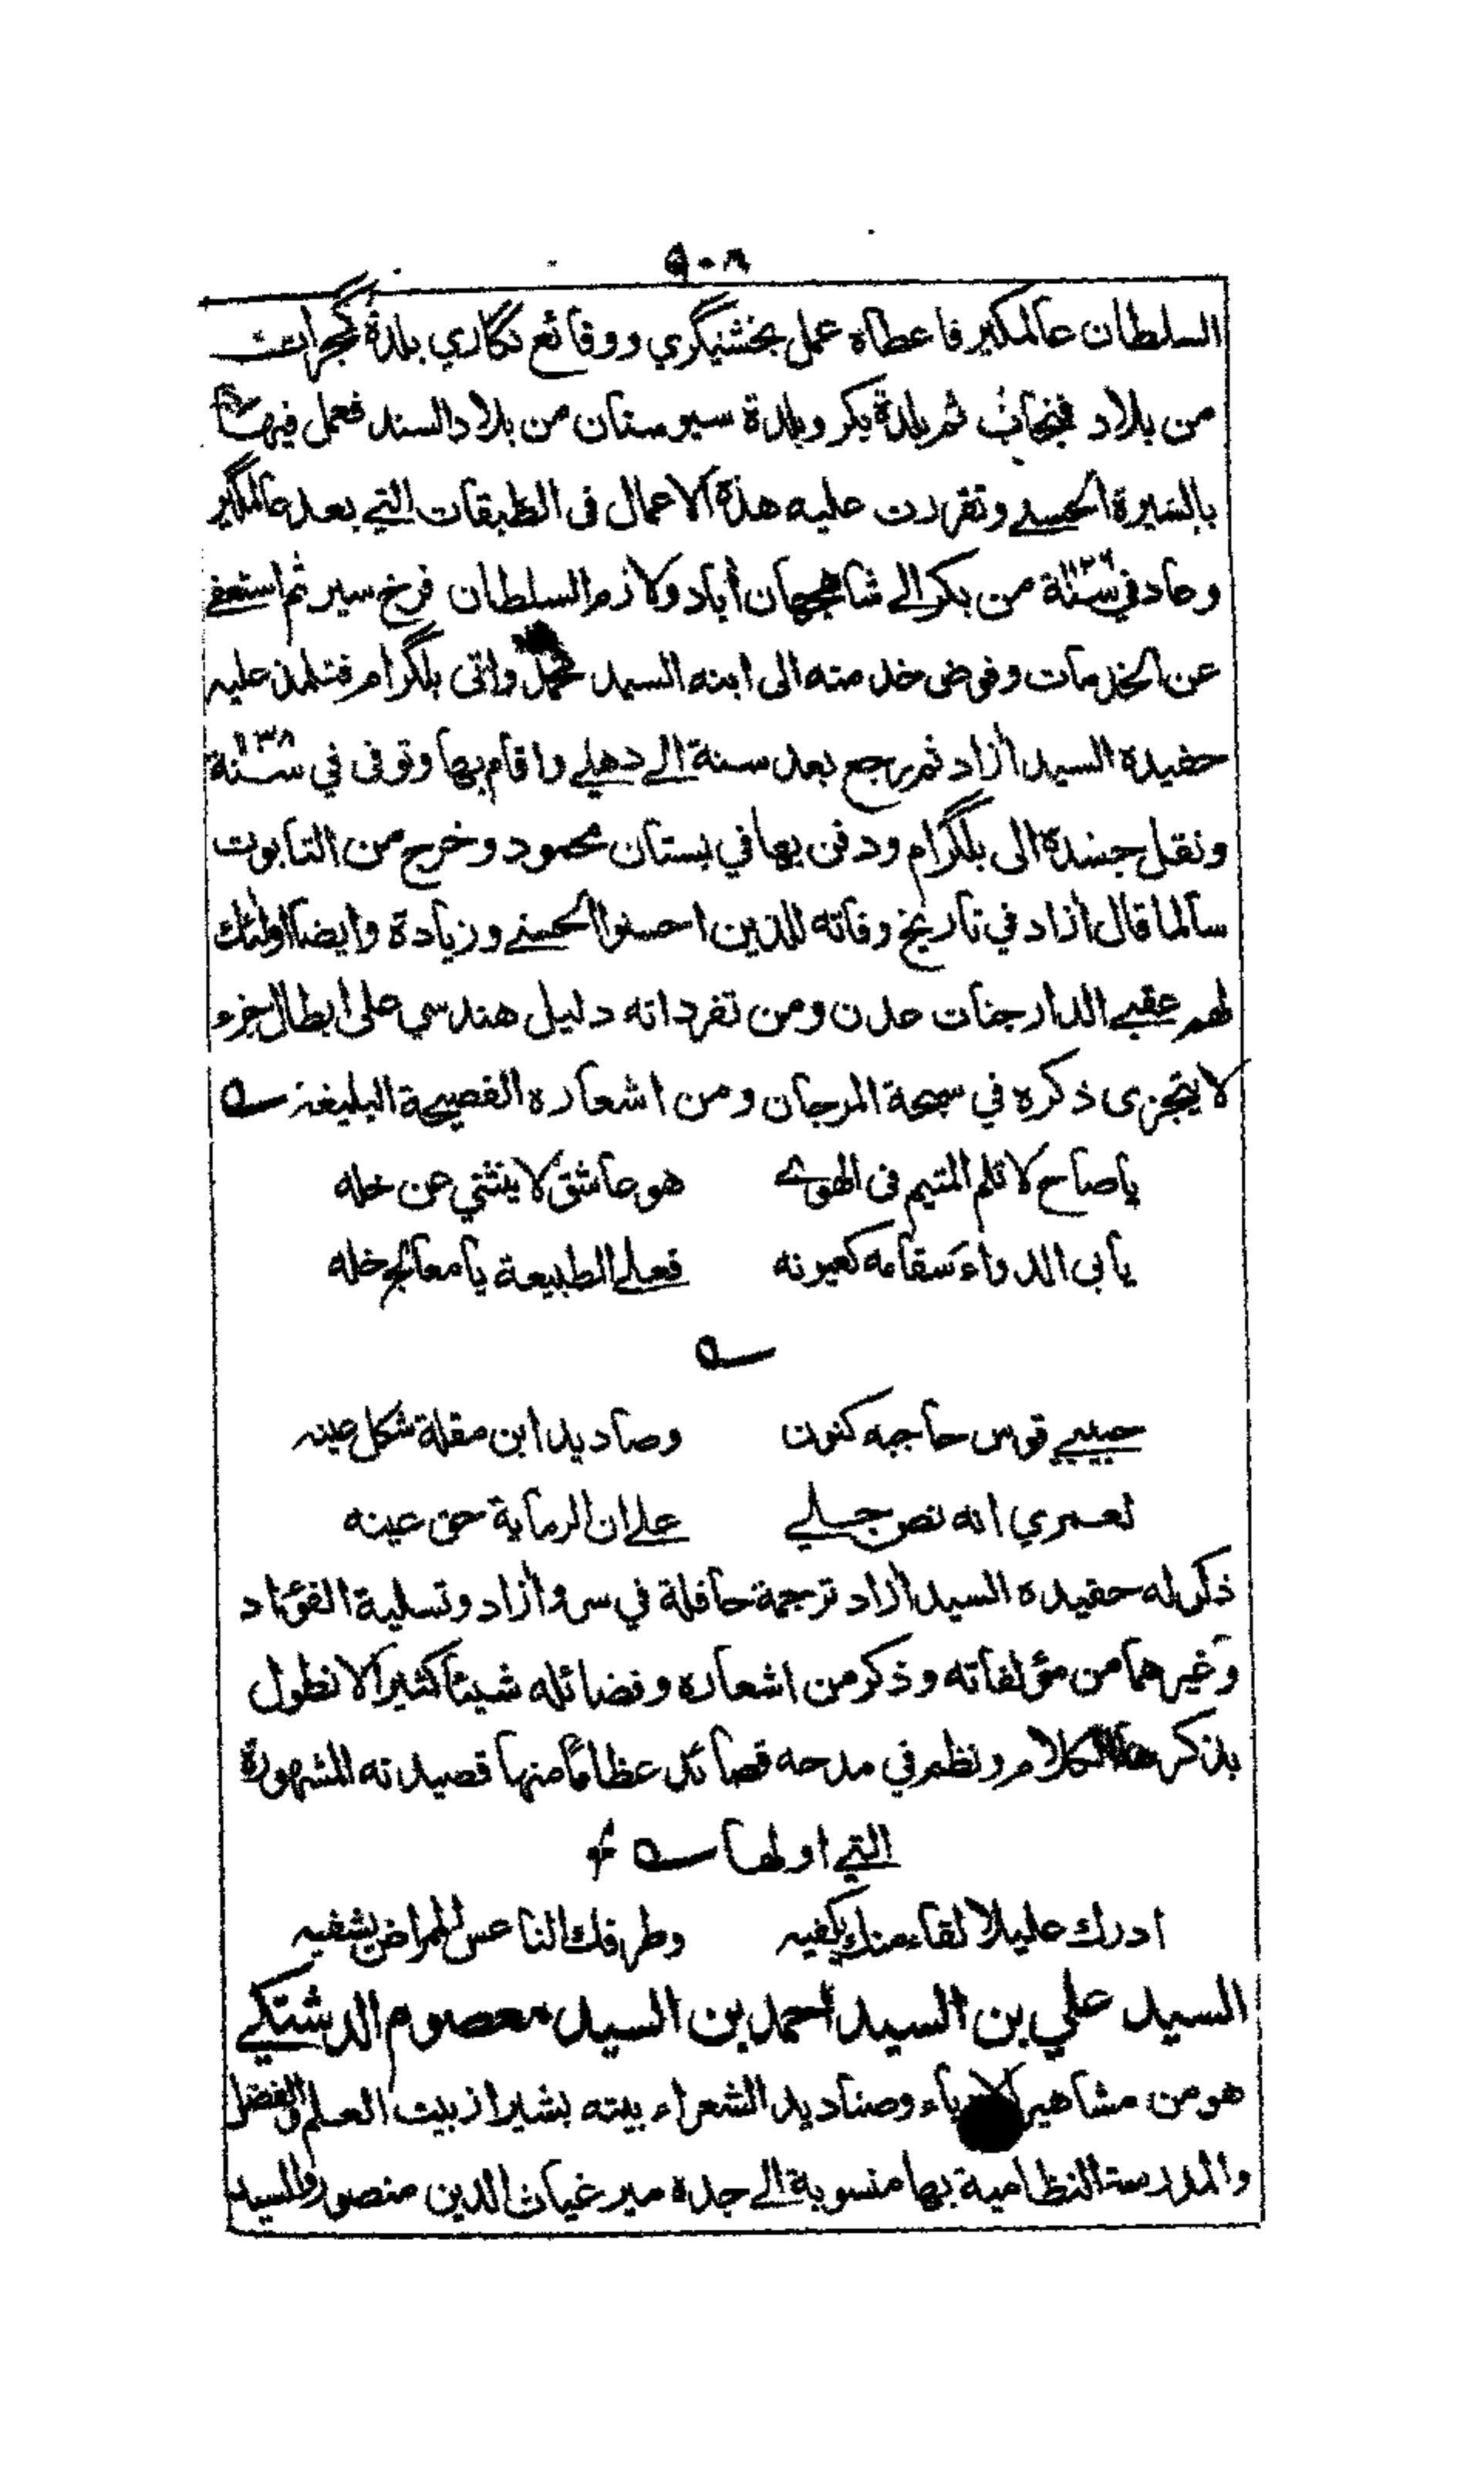 ٩٠٨
السلطان عالمكير فاعطاه عمل بخشيگري ووقائع نگاري بلدة گجرات
من بلاد فنجاب ثم بلدة بكر وبلدة سيوستان من بلاد السند فعمل فيها
بالسيرة الحسنى وتقررت عليه هذه الاعمال في الطبقات التي بعد عالمگير
وعاد في سنة من بكر الى شاهجهان أباد ولازم السلطان فرخ سير ثم استعفى
عن الخدمات وفوض خدمته الى ابنه السيد محمد واتى بلگرام فتلمذ عليه
حفيده السيد أزاد ثم رجع بعد سنة الى دهلي واقام بها وتوفى في سنة ١١٣٨
ونقل جسده الى بلگرام ودفن بها في بستان محمود وخرج من التابوت
سالما قال أزاد في تاريخ وفاته للذين احسنوا الحسنى وزيادة وايضا اولئك
لهم عقبى الدار جنات عدن ومن تفرداته دليل هندسي على ابطال جزء
لا يتجزى ذكره في سبحة المرجان ومن اشعاره الفصيحة البليغة ـه
ياصاح لا تلم المتيم في الهوى هو عاشق لا ينثني عن خله
يابى الدواء سقامه كعيونه فعلى الطبيعة يا معالج خله
ـه
حبيبي قوس حاجبه كنون وصاد يد ابن مقلة شكل عينه
لعمري انه نص جلي على ان الرماية حق عينه
ذكر له حفيده السيد أزاد ترجمة حافلة في سرو أزاد وتسلية الفؤاد
وغيرهما من مؤلفاته وذكر من اشعاره وفضائله شيئا كثيرا لا نطول
بذكر الكلام ونظم في مدحه قصائد عظاما منها قصيدته المشهورة
التي اولها ـه
ادرك عليلا لقاء منك يكفيه وطرفك الناعس الممراض يشفيه
السيد علي بن السيد احمد بن السيد معصوم الدشتكي
هو من مشاهير الادباء وصناديد الشعراء بيته بشيراز بيت العلم والفضل
والمدرسة النظامية بها منسوبة الى جده مير غياث الدين منصور والسيد